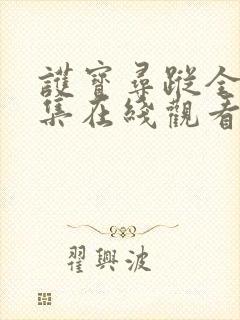 護寶尋蹤全
集在綫觀看
翟興波